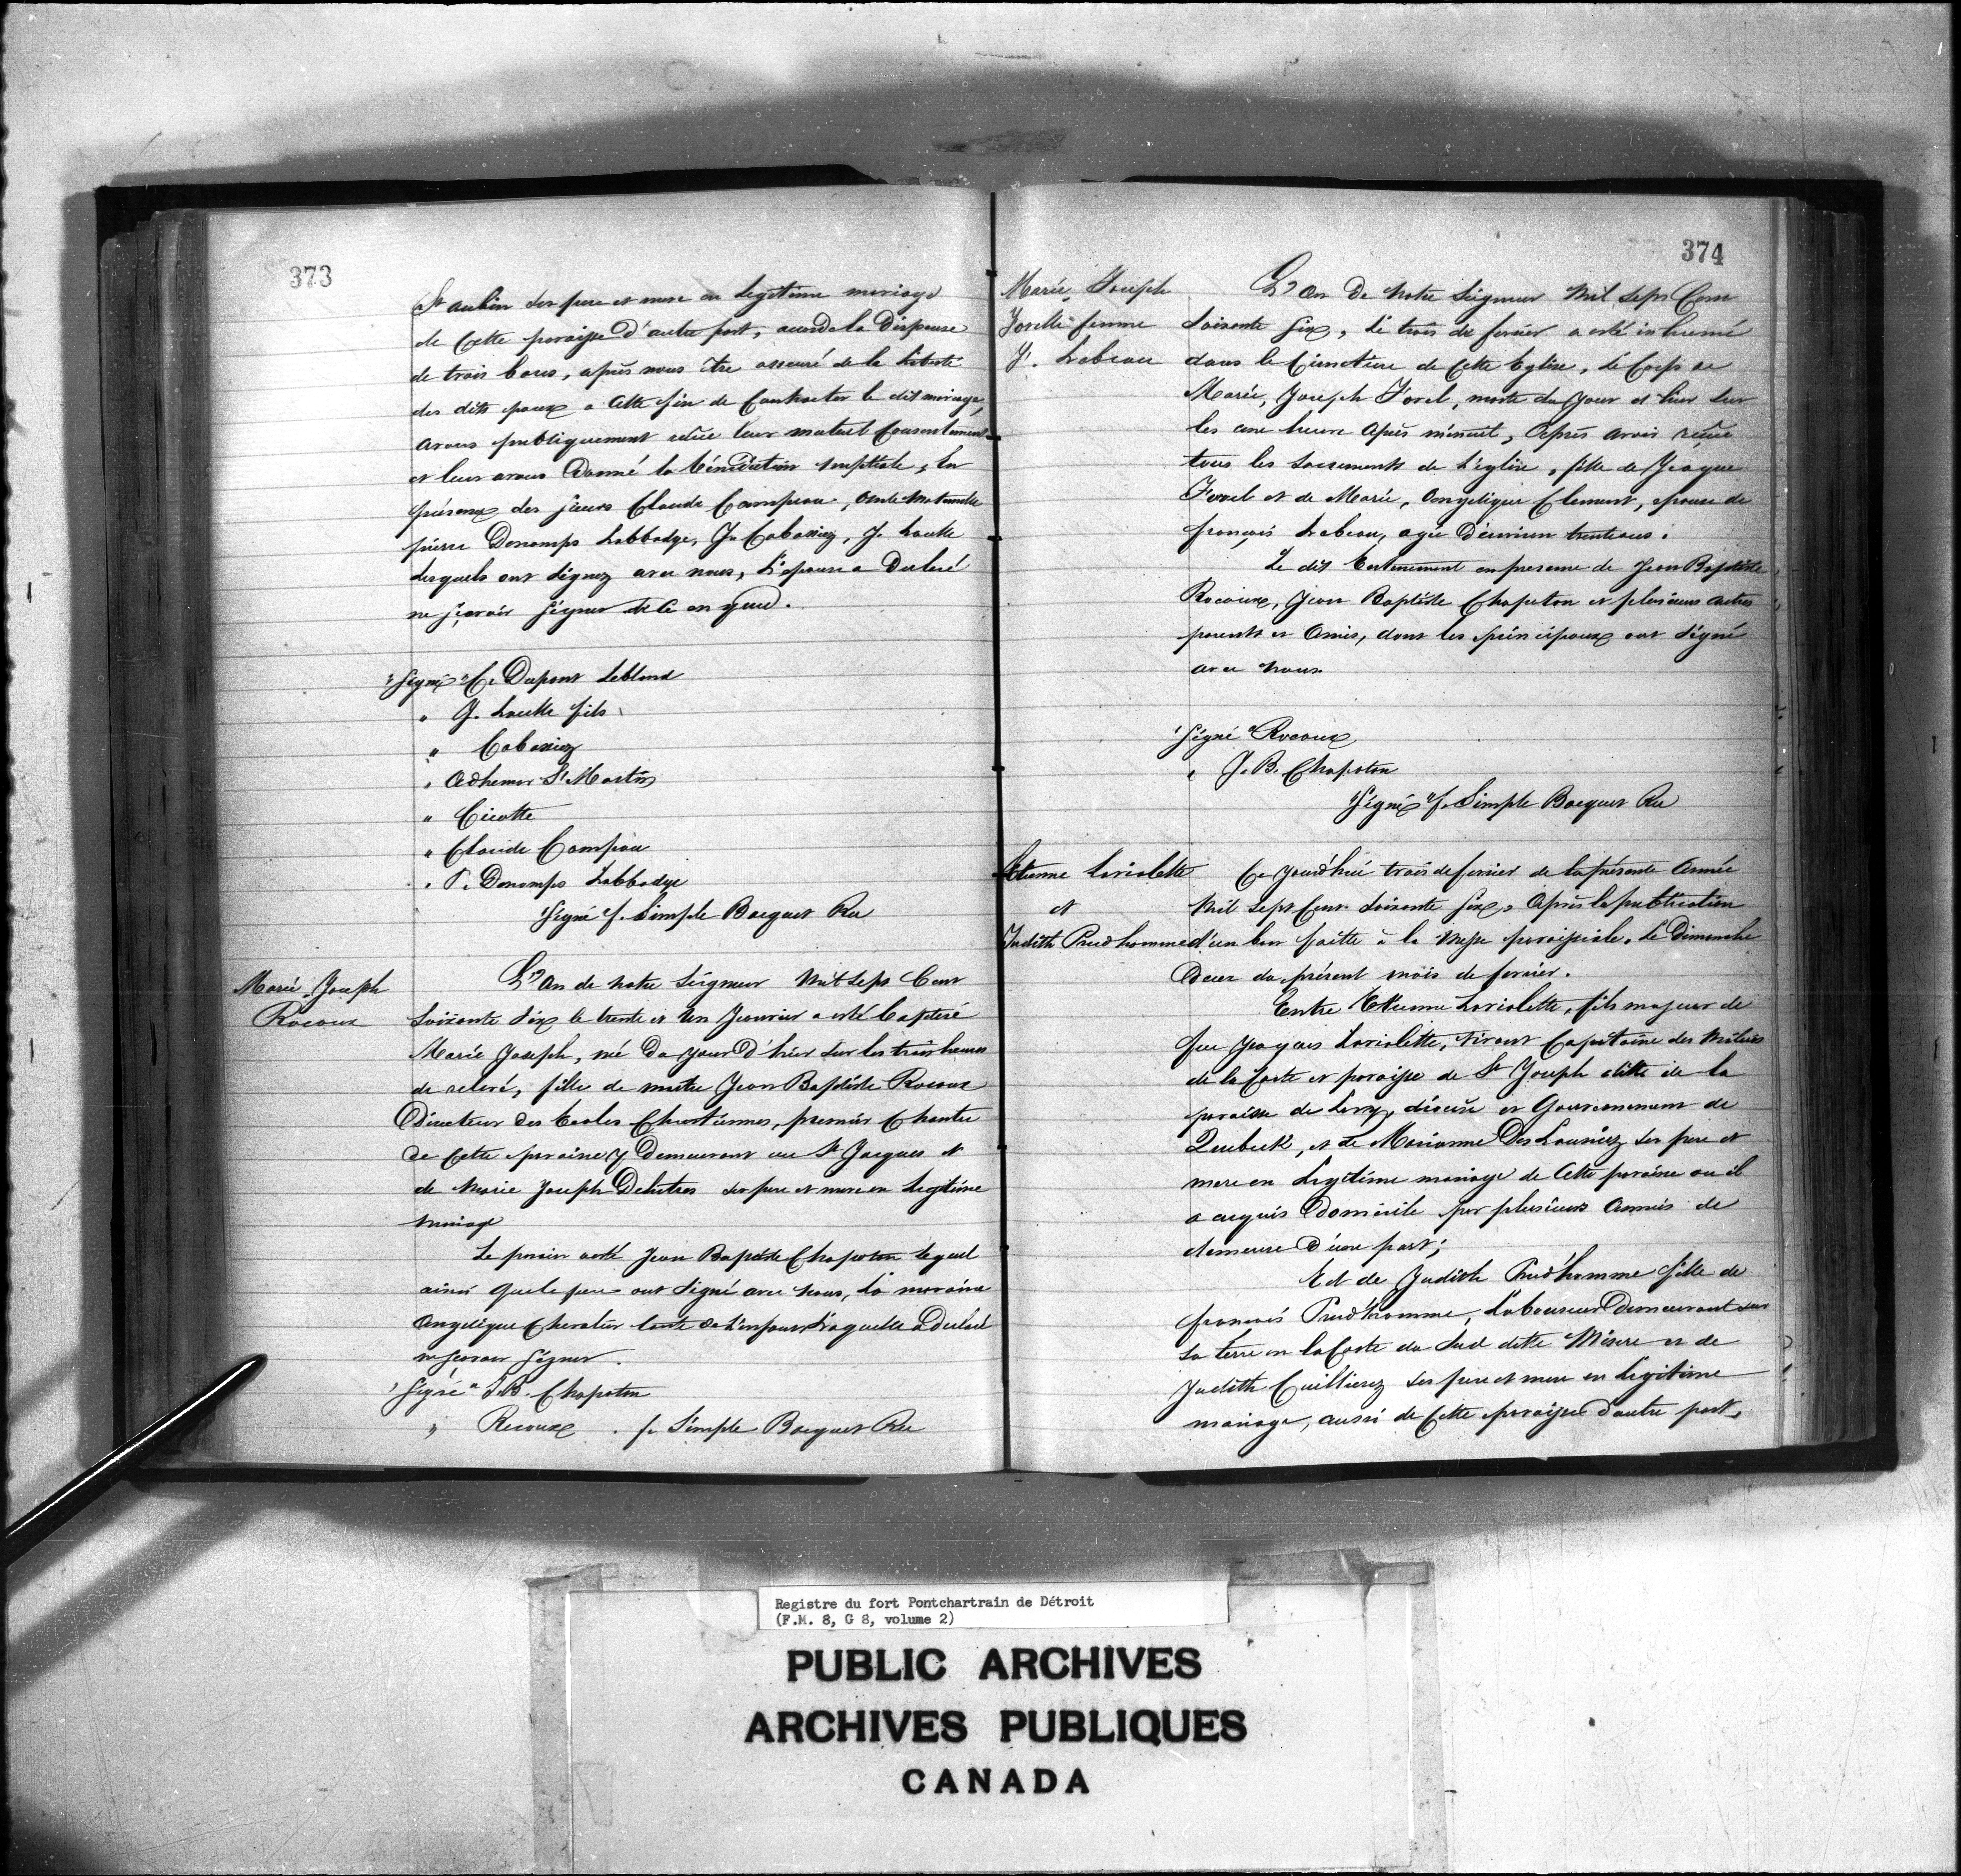 373
St aubin ses pere et mere en legitime mariage
de cette paroisse d'autre part, acordé la Dispense
de trois bans, après nous être asseuré de la liberté
des dits epoux a cette fin de Contracter le dit mariage,
avons publiquement reçue leur mutuel Consentement
et leur avons Donné la bénédiction nuptiale, En
présence des sieurs Claude Campeau, oncle maternelle
pierre Denomps Labbadye, Je Cabassiez, J. Laselle
Lesquels ont signez avec nous, L'epouse a Declaré
ne sçavoir signer de ce enquis.
"Signé" C. Dupont Leblond
" J. Laselle fils
" Cabassiez
" Adhemar St Martin
" Cicotte
" Claude Campau
" P. Denomps Labbadye
"Signé" f. Simple Bocquet Rec
Marie Joseph
Rocoux
L'an de notre Seigneur Mil Sept Cent
Soixante Six le trente et un Janvier a esté baptisé
Marie Joseph, né Du jour D'hier sur les trois heures
de relevé, fille de maitre Jean Baptiste Rocoux
Directeur des Ecoles Chrétiennes, premier Chantre
de Cette paroisse y Demeurant rue St Jacques et
de Marie Joseph Deheitres ses pere et mere en Legitime
mariage
Le parain a esté Jean Baptiste Chapoton lequel
ainsi que le pere ont signé avec nous, la maraine
Angelique Chevalier tante de L'enfant Laquelle a Declaré
ne sçavoir signer.
"Signé" J.B. Chapoton
" Rocoux . f. Simple Bocquet Rec
374
Marie Joseph
Jorelle femme
f. Lebeau
L'an De Notre Seigneur Mil Sept Cent
Soixante Six, le trois de fevrier a esté inhumé
dans le Cimetiere de Cette Eglise, le Corps de
Marie, Joseph Forel, morte du jour d'hier sur
les onze heure après minuit, Après avoir reçue
tous les Sacrements de L'église, fille de Jacque
Forel et de Marie, Angelique Clement, epouse de
françois Lebeau, agée D'environ trente ans.
Le dit Enterrement en presence de Jean Baptiste
Rocoux, Jean Baptiste Chapoton et plusieurs autres
parents et Amis, dont les principaux ont signé
avec nous
"Signé" Rocoux
" J.B. Chapoton
"Signé" f. Simple Bocquet Rec
Etienne Laviolette
et
Judith Prudhomme
Ce jourd'hui trois de fevrier de la présente Année
Mil Sept Cent Soixante Six, Après la publication
d'un ban faitte à la Messe paroissiale, le Dimanche
Deux du présent mois de fevrier.
Entre Etienne Laviolette, fils majeur de
feu Jacques Laviolette, vivant Capitaine des Milices
de la Coste et paroisse de St Joseph ditte de la
paroisse de Levy, diocèse et Gouvernement de
Quebeck, et de Marianne Des Lauriez ses pere et
mere en Legitime mariage de Cette paroisse ou il
a acquis Domicile par plusieurs Années de
demeure D'une part;
Et de Judith Prud'homme fille de
françois Prud'homme, Laboureur Demeurant sur
sa terre en la Coste du Sud ditte Misere et de
Judith Cuillierez ses pere et mere en Legitime
mariage, aussi de Cette paroisse d'autre part,
Registre du fort Pontchartrain de Détroit
(F.M. 8, G 8, volume 2)
PUBLIC ARCHIVES
ARCHIVES PUBLIQUES
CANADA